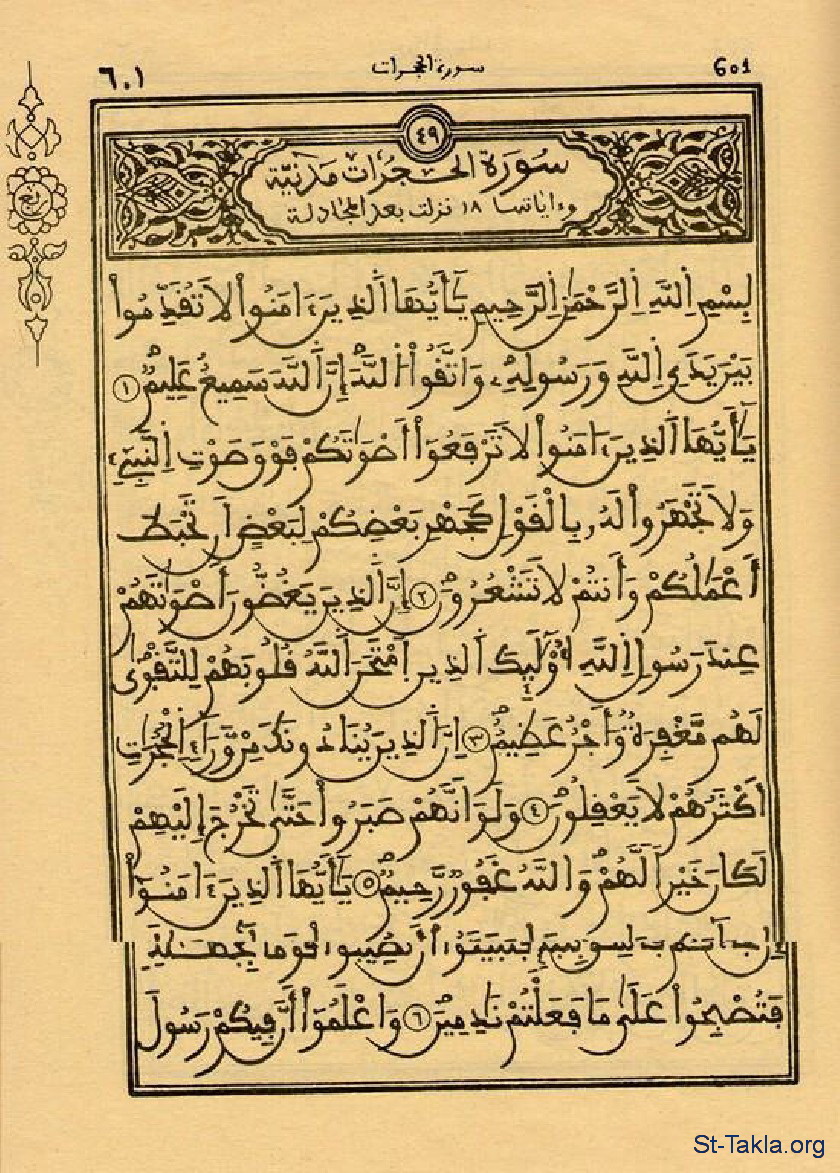 601 سورة الحجرات ٦٠١
٤٩
سُورَة الحُجُرَات مَدَنِيَّة
وءاياتها ١٨ نزلت بعد المجادلة
ربع
بِسْمِ اِللَّهِ اِلرَّحْمَٰنِ اِلرَّحِيمِ يَٰأَيُّهَا اَلذِينَ ءَامَنُواْ لَا تُقَدِّمُواْ
بَيْنَ يَدَيِ اِللَّهِ وَرَسُولِهِۦ وَاتَّقُواْ اَللَّهَ إِنَّ اَللَّهَ سَمِيعٌ عَلِيمٌ ١
يَٰأَيُّهَا اَلذِينَ ءَامَنُواْ لَا تَرْفَعُواْ أَصْوَٰتَكُمْ فَوْقَ صَوْتِ اِلنَّبِيءِ
وَلَا تَجْهَرُواْ لَهُۥ بِالْقَوْلِ كَجَهْرِ بَعْضِكُمْ لِبَعْضٍ أَن تَحْبَطَ
أَعْمَٰلُكُمْ وَأَنتُمْ لَا تَشْعُرُونَ ٢ إِنَّ اَلذِينَ يَغُضُّونَ أَصْوَٰتَهُمْ
عِندَ رَسُولِ اِللَّهِ أُوْلَٰئِكَ اَلذِينَ اَمْتَحَنَ اَللَّهُ قُلُوبَهُمْ لِلتَّقْوَىٰ
لَهُم مَّغْفِرَةٌ وَأَجْرٌ عَظِيمٌ ٣ اِنَّ اَلذِينَ يُنَادُونَكَ مِنْ وَّرَآءِ اِلْحُجُرَٰتِ
أَكْثَرُهُمْ لَا يَعْقِلُونَ ٤ وَلَوَ اَنَّهُمْ صَبَرُواْ حَتَّىٰ تَخْرُجَ إِلَيْهِمْ
لَكَانَ خَيْراً لَّهُمْ وَاللَّهُ غَفُورٌ رَّحِيمٌ ٥ يَٰأَيُّهَا اَلذِينَ ءَامَنُواْ
إِن جَآءَكُمْ فَاسِقٌ بِنَبَإٍ فَتَبَيَّنُواْ أَن تُصِيبُواْ قَوْماَ بِجَهَٰلَةٍ
فَتُصْبِحُواْ عَلَىٰ مَا فَعَلْتُمْ نَٰدِمِينَ ٦ وَاعْلَمُواْ أَنَّ فِيكُمْ رَسُولَ
St-Takla.org